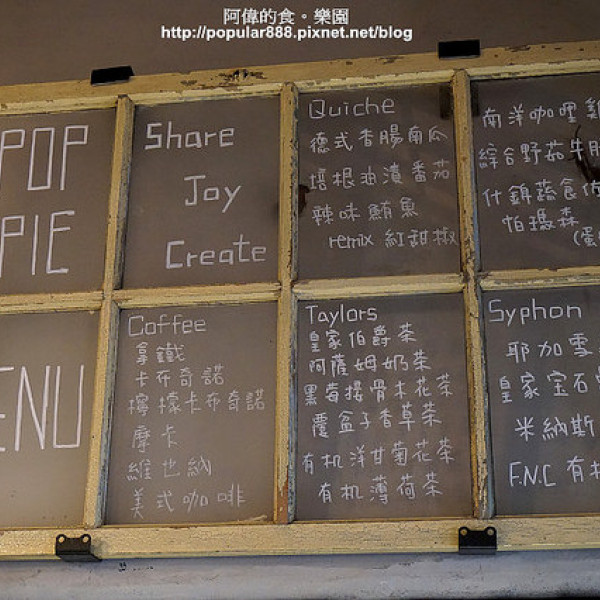 阿偉的食。樂園
http://popular888.pixnet.net/blog
POP
PIE
Share
Joy
Create
Quiche
德式香腸南瓜
培根油漬番茄
辣味鮪魚
remix 紅甜椒
南洋咖哩雞
綜合野菇牛
什錦蔬食佐
帕瑪森
ENU
Coffee
拿鐵
卡布奇諾
檸檬卡布奇諾
摩卡
維也納
美式咖啡
Taylors
皇家伯爵茶
阿薩姆奶茶
黑莓接骨木花茶
覆盆子香草茶
有机洋甘菊花茶
有机薄荷茶
Syphon
耶加雪
皇家宝石
米納斯
F.N.C 有机